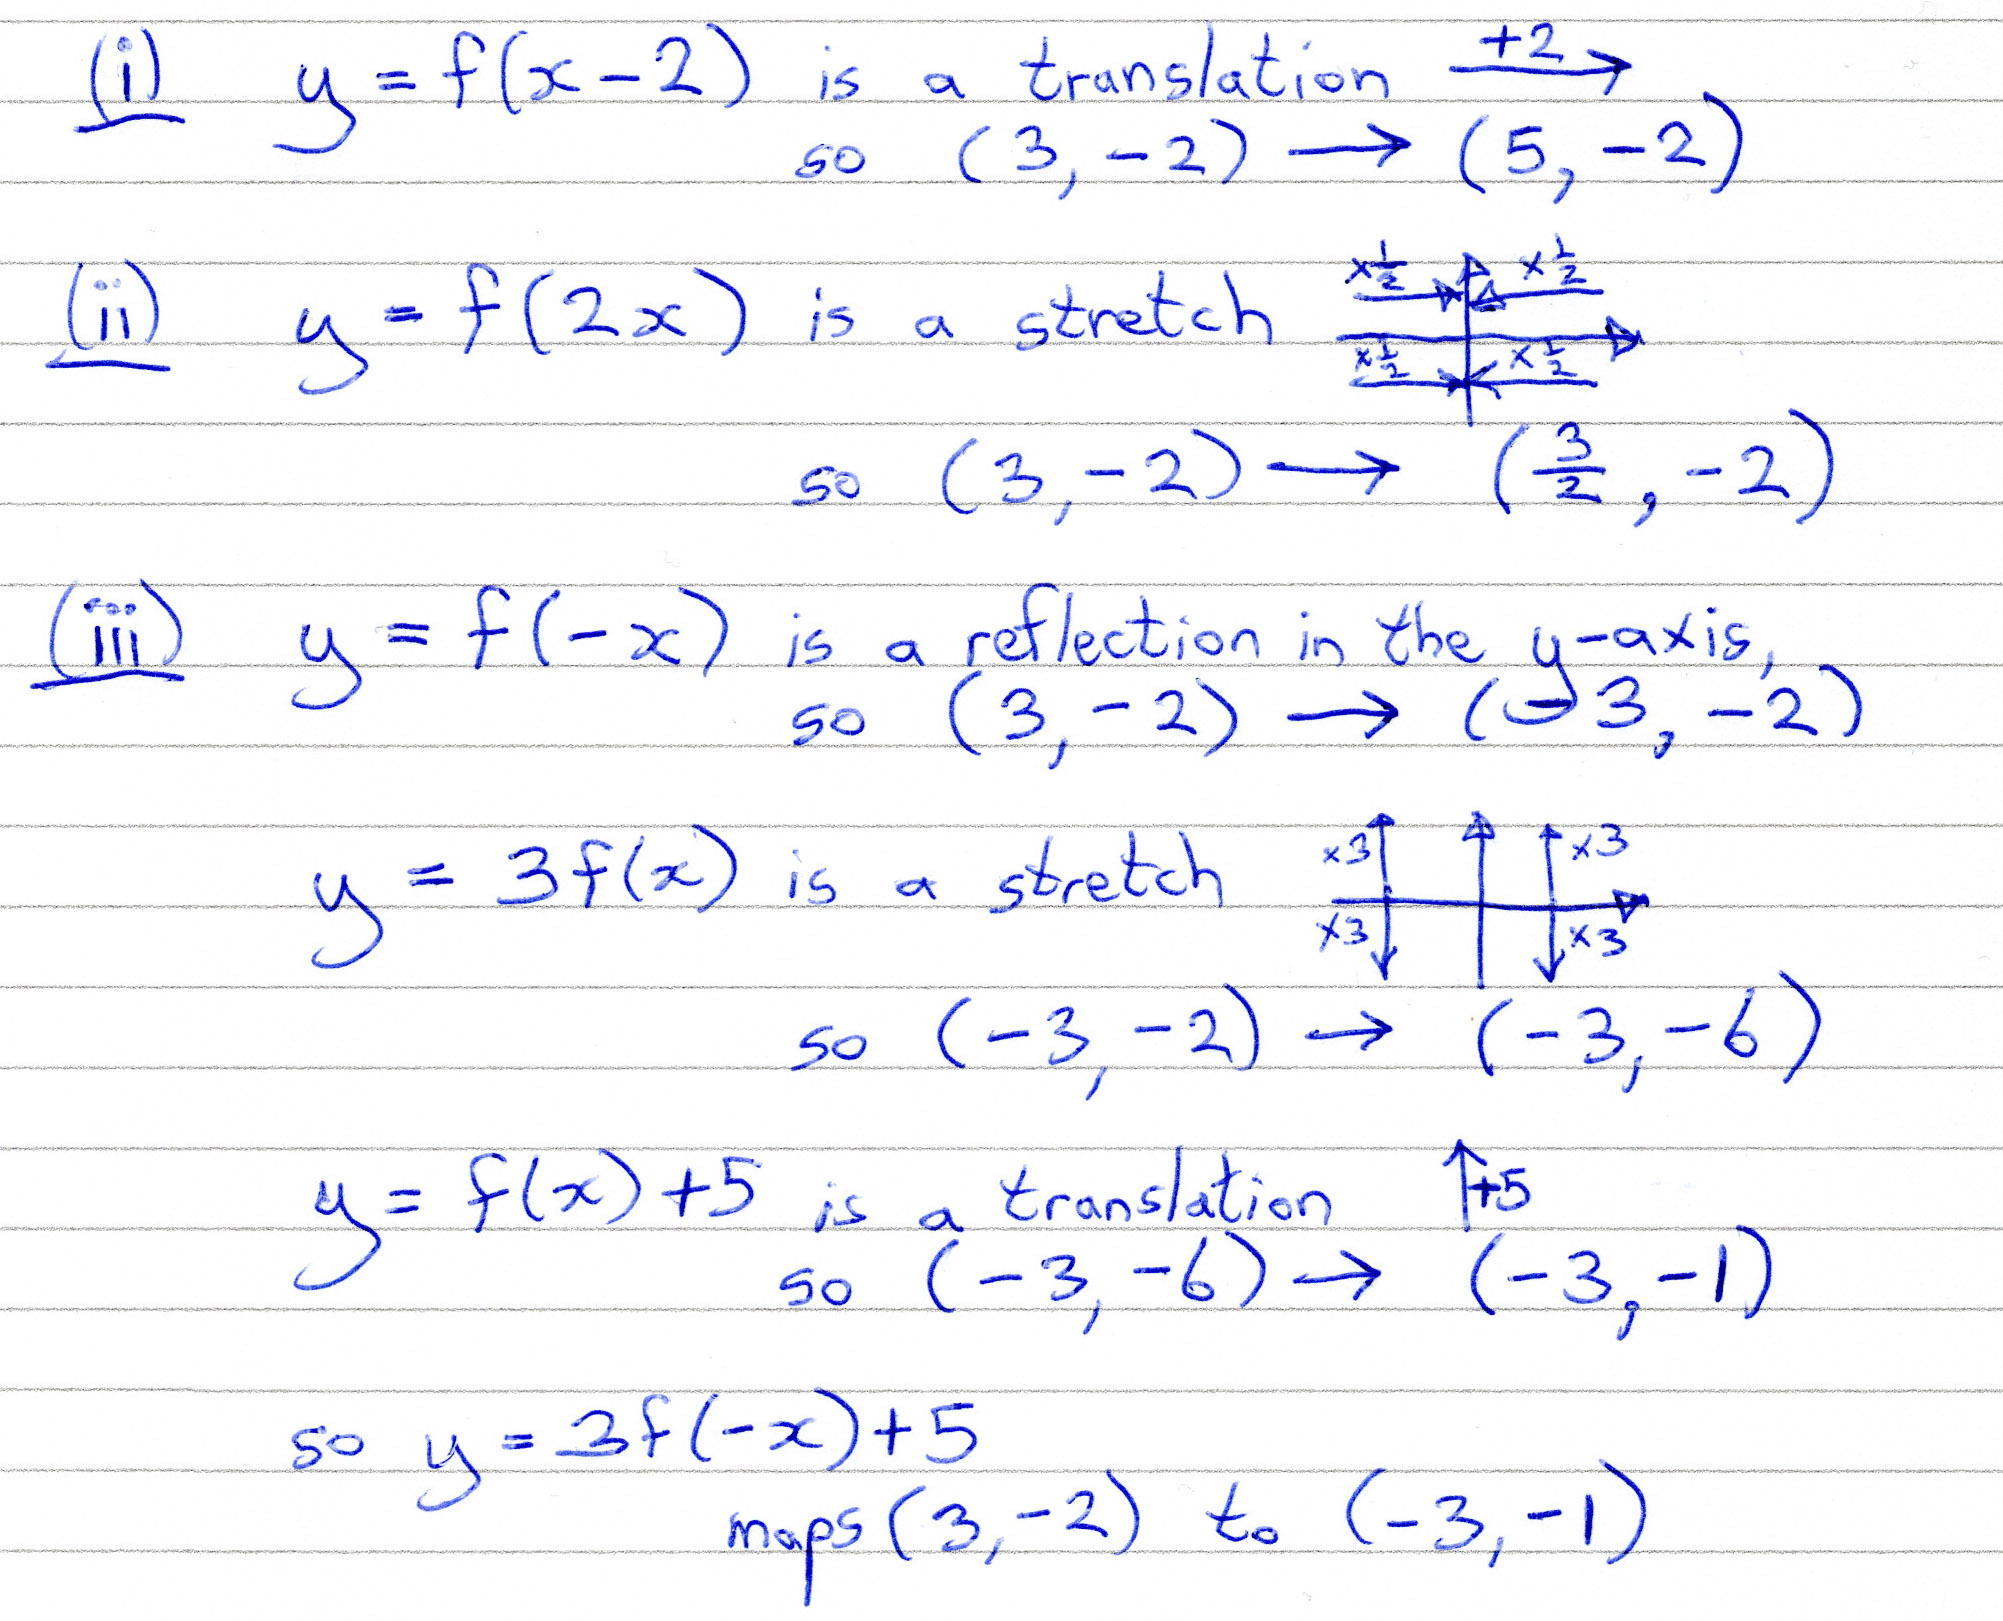 (i) y = f(x-2) is a translation +2→
so (3, -2) → (5, -2)
(ii) y = f(2x) is a stretch ×1/2 ×1/2
×1/2 ×1/2
so (3, -2) → (3/2, -2)
(iii) y = f(-x) is a reflection in the y-axis,
so (3, -2) → (-3, -2)
y = 3f(x) is a stretch ×3 ×3
×3 ×3
so (-3, -2) → (-3, -6)
y = f(x)+5 is a translation ↑+5
so (-3, -6) → (-3, -1)
so y = 3f(-x)+5
maps (3, -2) to (-3, -1)